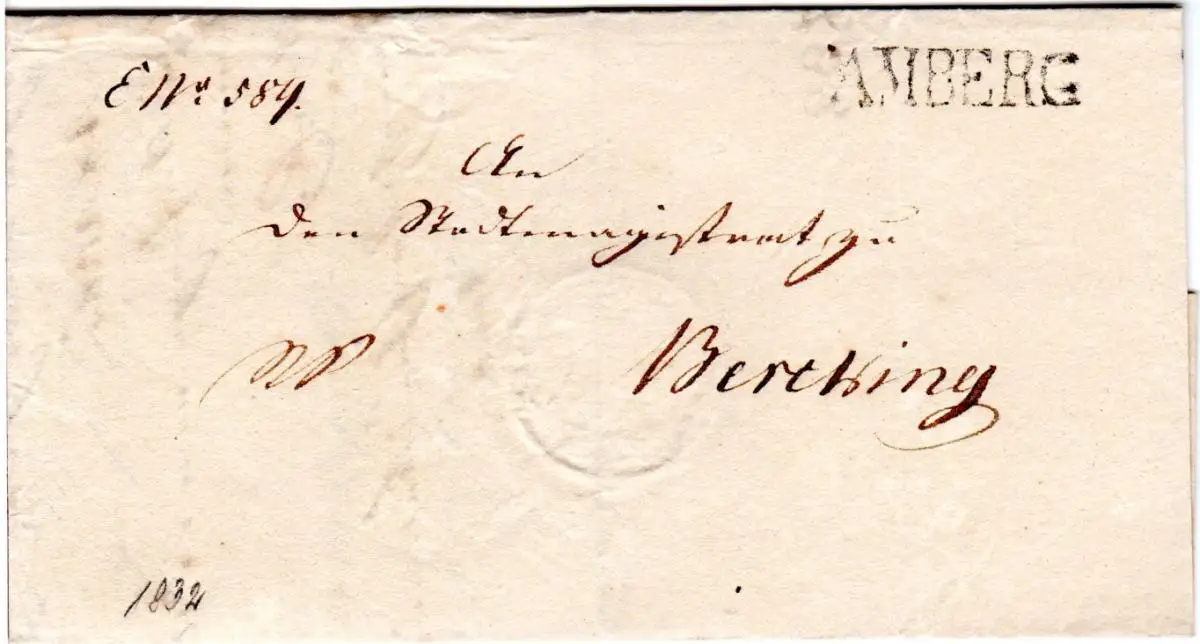 E Nr. 589.
AMBERG
An
den Stadtmagistrat zu
Berching
1832